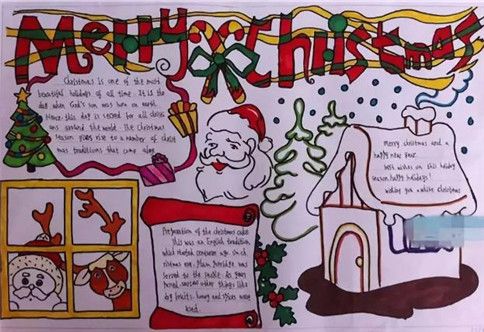 Merry Christmas
Christmas is one of the most
beautiful holidays of all time. It is the
day when God's son was born on earth.
Hence this day is sacred for all christ
ians around the world. The Christmas
season gives rise to a number of christ
mas traditions that come along.
Merry christmas and a
happy new year.
best wishes on this holiday
season happy holidays!
wishing you a white christmas
Preparation of the christmas cakes
This was an English tradition,
which started centuries ago. On ch
ristmas eve, Plum porridge was
served to the people. As years
passed, various other things like
dry fruits, honey and spices were